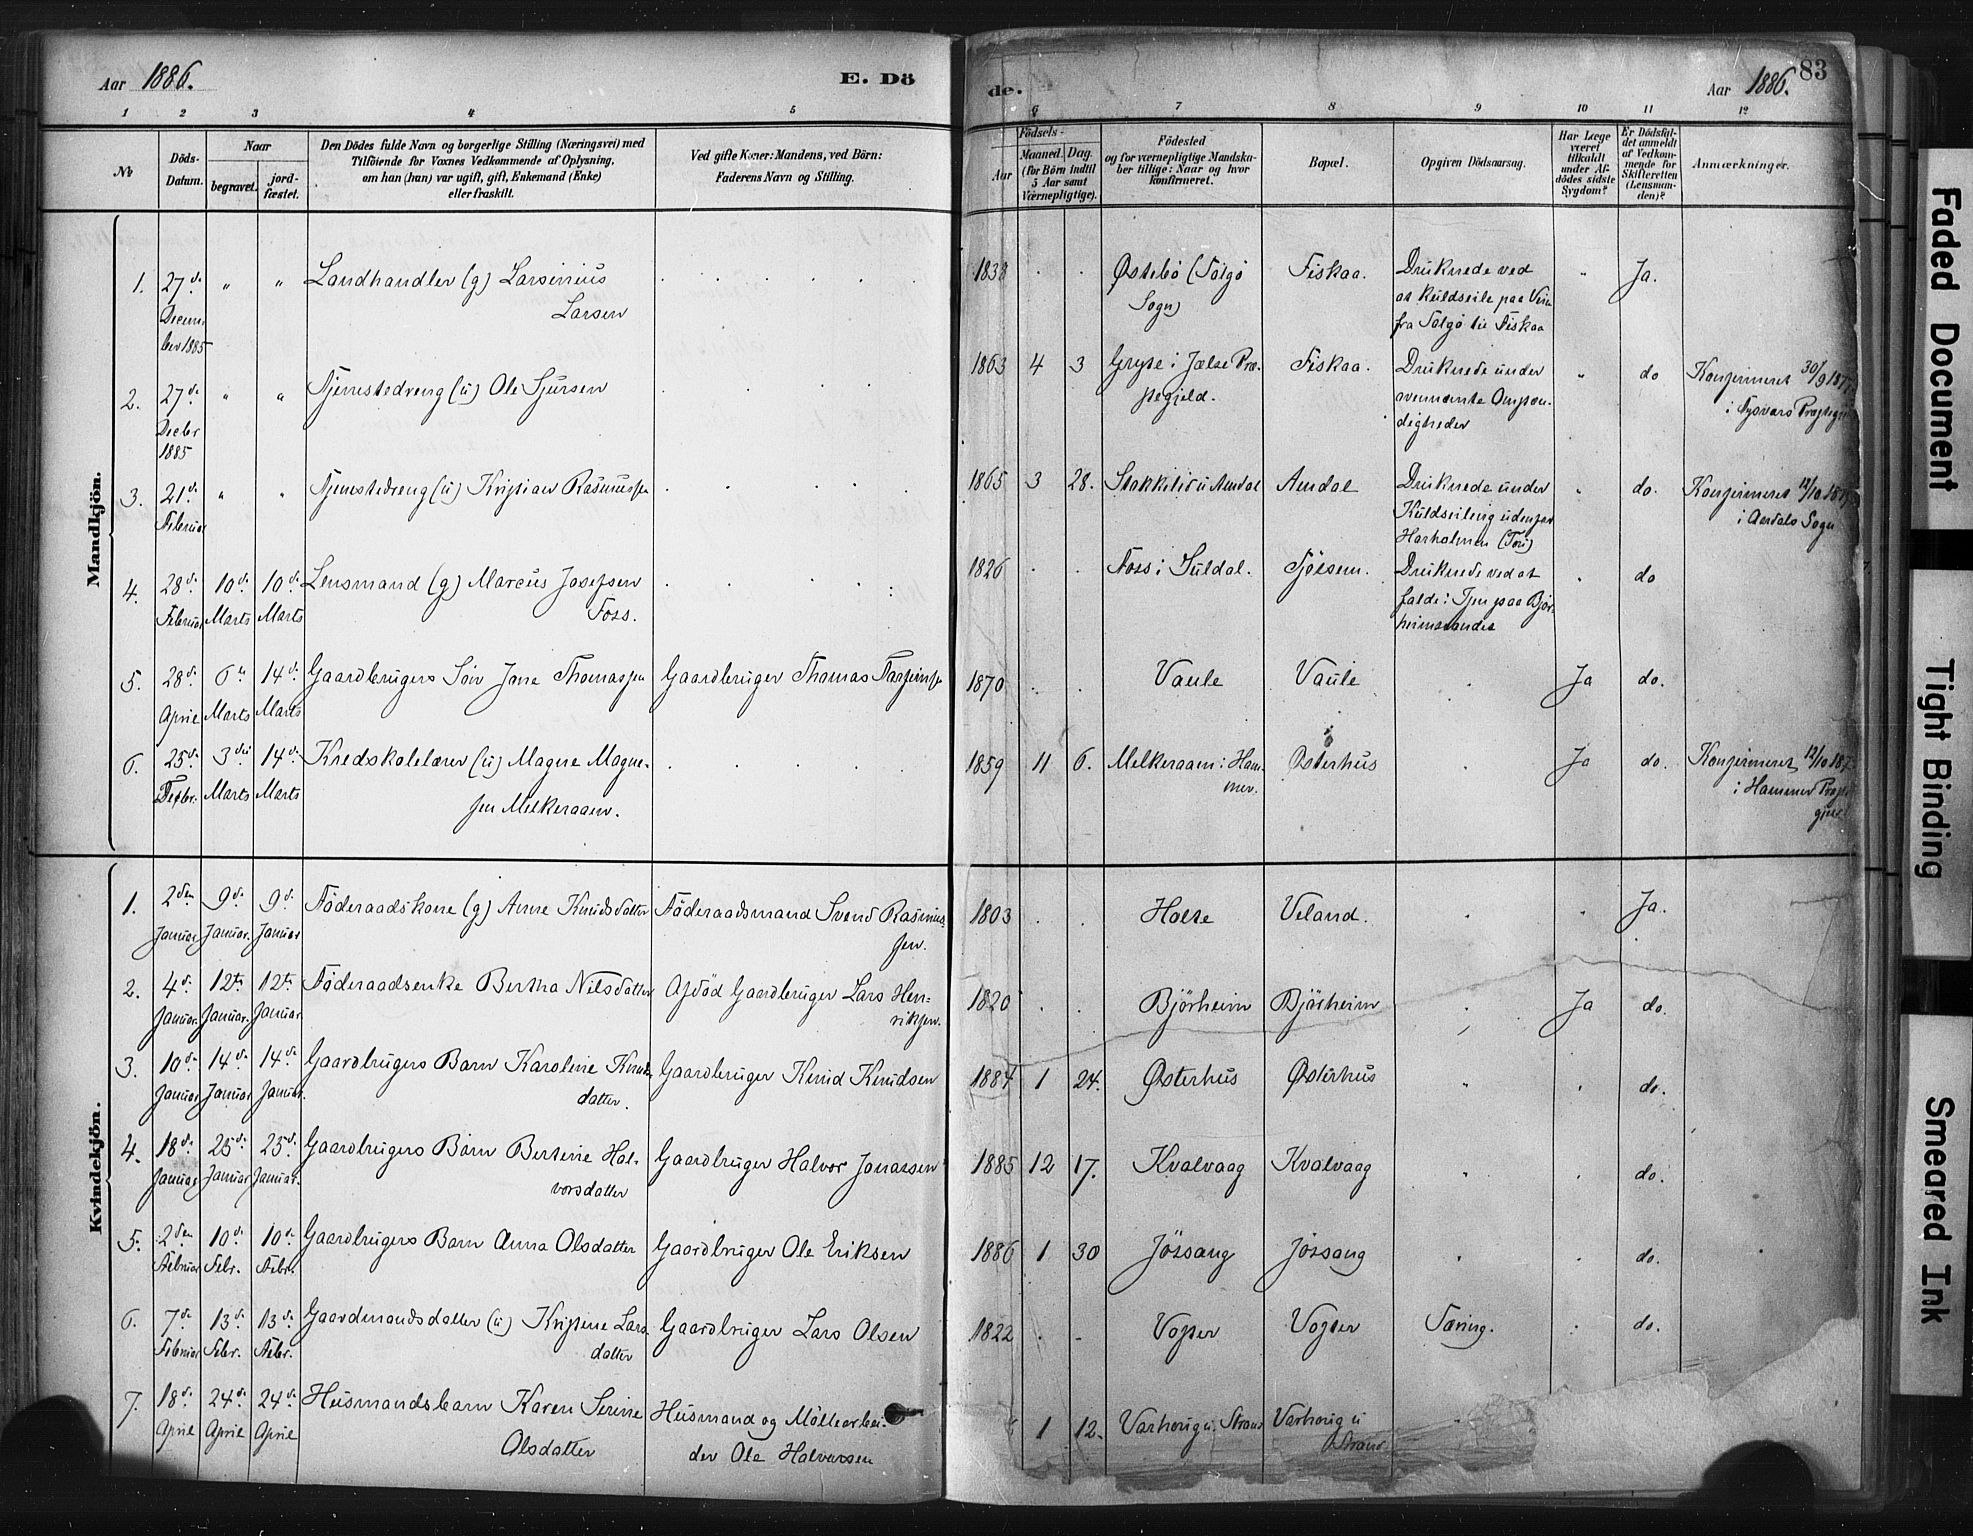 Aar 1886.
E. Dö
de.
Aar 1886.
83
1 2 3 4 5 6 7 8 9 10 11 12
No
Döds-
Datum.
Naar
begravet.
jord-
fæstet.
Den Dödes fulde Navn og borgerlige Stilling (Næringsvei) med
Tilföiende for Voxnes Vedkommende af Oplysning,
om han (hun) var ugift, gift, Enkemand (Enke)
eller fraskilt.
Ved gifte Koner: Mandens, ved Börn:
Faderens Navn og Stilling.
Födsels-
Aar
Maaned.
Dag
(for Börn indtil
5 Aar samt
Værnepligtige).
Födested
og for værnepligtige Mandska-
ber tillige: Naar og hvor
konfirmeret.
Bopæl.
Opgiven Dödsaarsag.
Har Læge
været
tilkaldt
under Af-
dödes sidste
Sygdom?
Er Dödsfal-
det anmeldt
af Vedkom-
mende for
Skifteretten
(Lensman-
den)?
Anmærkninger.
Mandkjön.
1. 27de Decem-
ber 1885 " " Landhandler (g) Larsinius
Larsen
1838 Østebö (Talgö
Sogn) Fiskaa. Druknede ved
at kuldseile paa Vei
fra Talgö til Fiskaa " Ja.
2. 27de Decbr
1885 " " Tjenestedreng (u) Ole Sjursen
1863 4 3 Gryte i Jælse Præ-
stegjeld. Fiskaa. Druknede under
ovennævnte Omstæn-
digheder " do Konfirmeret 30/9 187
i Tysværs Præstegj
3. 21de Februar " " Tjenestedreng (u) Kristian Rasmussen
1865 3 28. Aardal Druknede under
Kuldseiling udenfor
" do. Konfirmeret 12/10 18
i Aardals Sogn
4. 28de Februar 10de Marts 10de Marts Lensmand (g) Marcus Josefsen
Foss.
1826 Foss i Suldal. Tjössem. Druknede ved at
falde i Tjen paa Björ-
heimsvandet " do
5. 28de April 6te Marts 14de Marts Gaardbrugers Sön Jone Thomassen Gaardbruger Thomas
1870 Vaule Vaule Ja do.
6. 25de Febr. 3die Marts 14de Marts Kredsskolelærer (u) Magne Magne-
sen Melkeraaen.
1859 11 6. Melkeraaen i Ham-
mer. Østerhus Ja do. Konfirmeret 12/10 187
i Hammer Præste
gjeld
Kvindekjön.
1. 2den Januar 9de Januar. 9de Januar Föderaadskone (g) Anne Knudsdatter Föderaadsmand Svend Rasmus-
sen.
1803 Holte Veland. Ja.
2. 4de Januar. 12te Januar. 12te Januar Föderaadsenke Bertha Nilsdatter Afdöd Gaardbruger Lars Hen-
riksen.
1820 Björheim Björheim Ja do.
3. 10de Januar 14de Januar 14de Januar. Gaardbrugers Barn Karoline Knuds-
datter. Gaardbruger Knud Knudsen
1884 1 24. Østerhus Østerhus do.
4. 18de Januar 25de Januar 25de Januar. Gaardbrugers Barn Bertine Hal-
vorsdatter Gaardbruger Halvor Jonassen
1885 12 17. Kvalvaag Kvalvaag do.
5. 2den Februar 10de Febr. 10de Febr. Gaardbrugers Barn Anna Olsdatter Gaardbruger Ole Eriksen
1886 1 30 Jössang Jössang do.
6. 7de Februar 13de Febr. 13de Febr. Gaardmandsdatter (u) Kristine Lars-
datter Gaardbruger Lars Olsen
1822 Vogter Vogter Tæring. do.
7. 18de April 24de April 24de April Husmandsbarn Karen Serine
Olsdatter Husmand og Möllearbei-
der Ole Halvorsen
1 12. Strand
Strand
Faded Document
Tight Binding
Smeared Ink